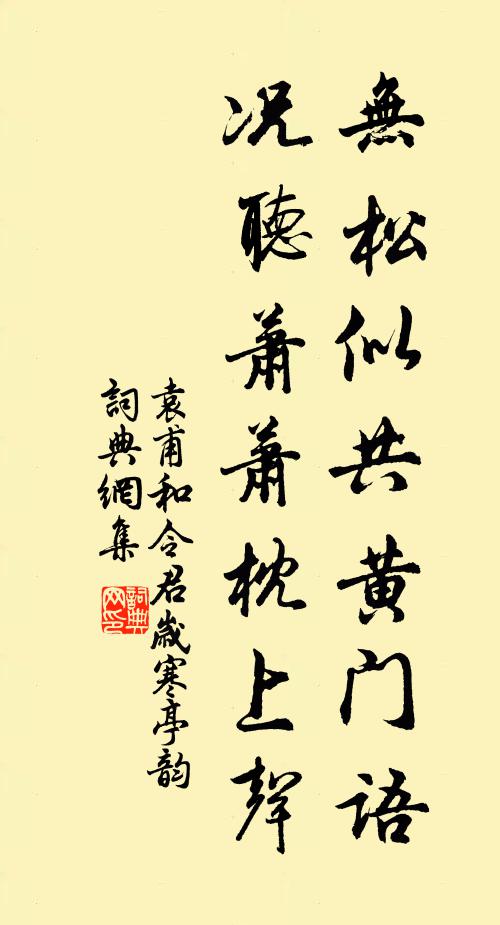 無松似共黄门语
况聽蕭蕭枕上聲
袁甫和令君歲寒亭韵
詞典網集
詞典网印